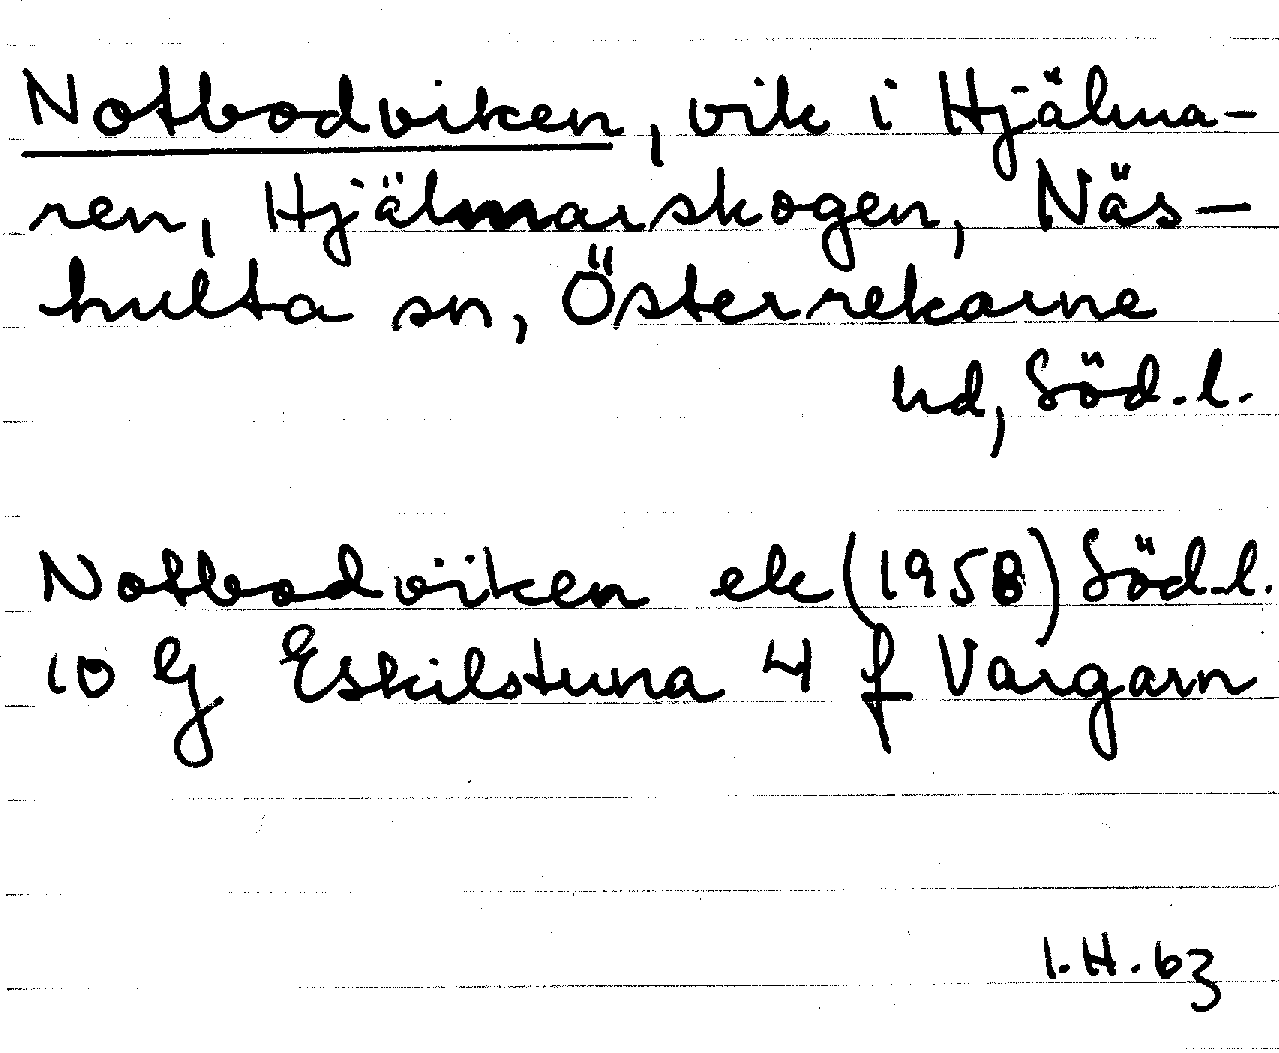 Notbodviken, vik i Hjälma-
ren, Hjälmarskogen, Näs-
hulta sn, Österrekarne
hd, Söd.l.
Notbodviken ek (1958) Söd.l.
10 G Eskilstuna 4 f Vargarn
I.H.63